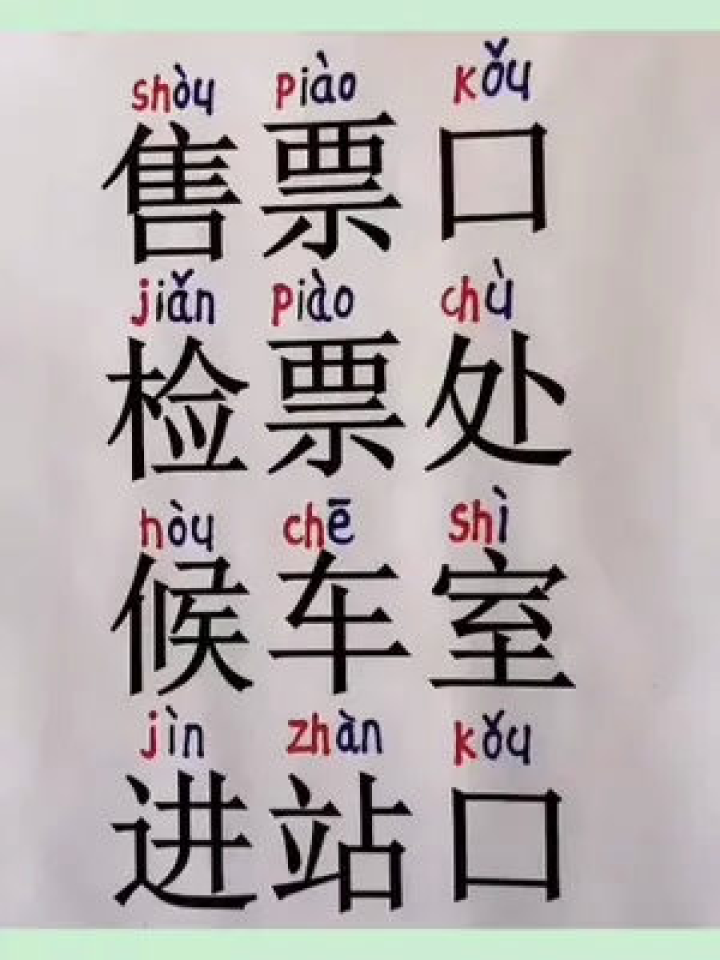 shòu piào kǒu
售票口
jiǎn piào chù
检票处
hòu chē shì
候车室
jìn zhàn kǒu
进站口